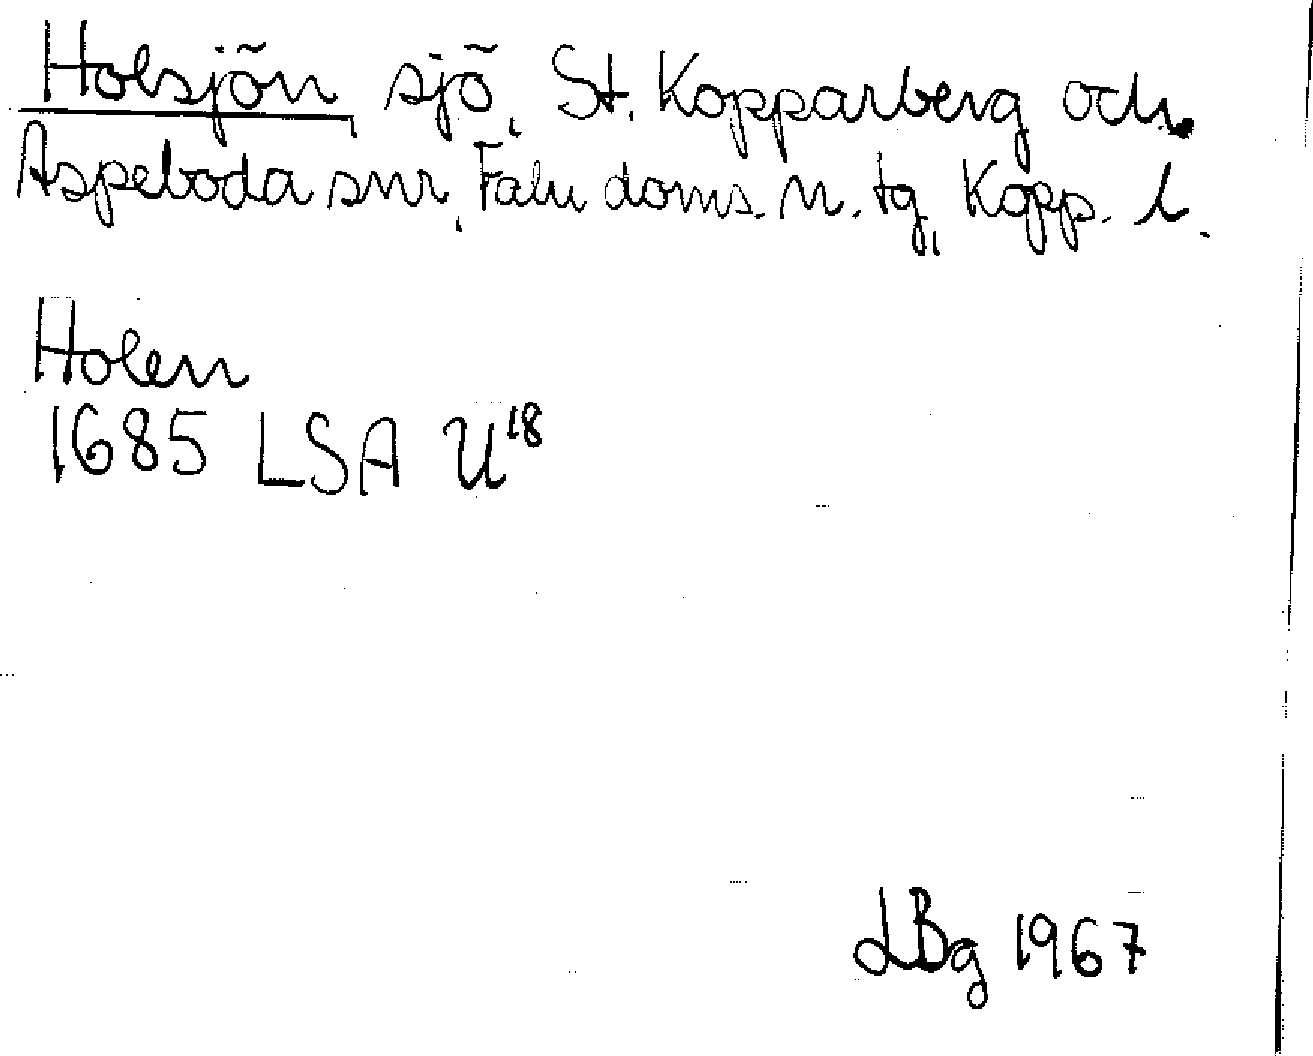 Holsjön, sjö, St. Kopparberg och
Aspeboda snr, Falu doms. n. tg, Kopp. l.
Holen
1685 LSA U18
LBg 1967